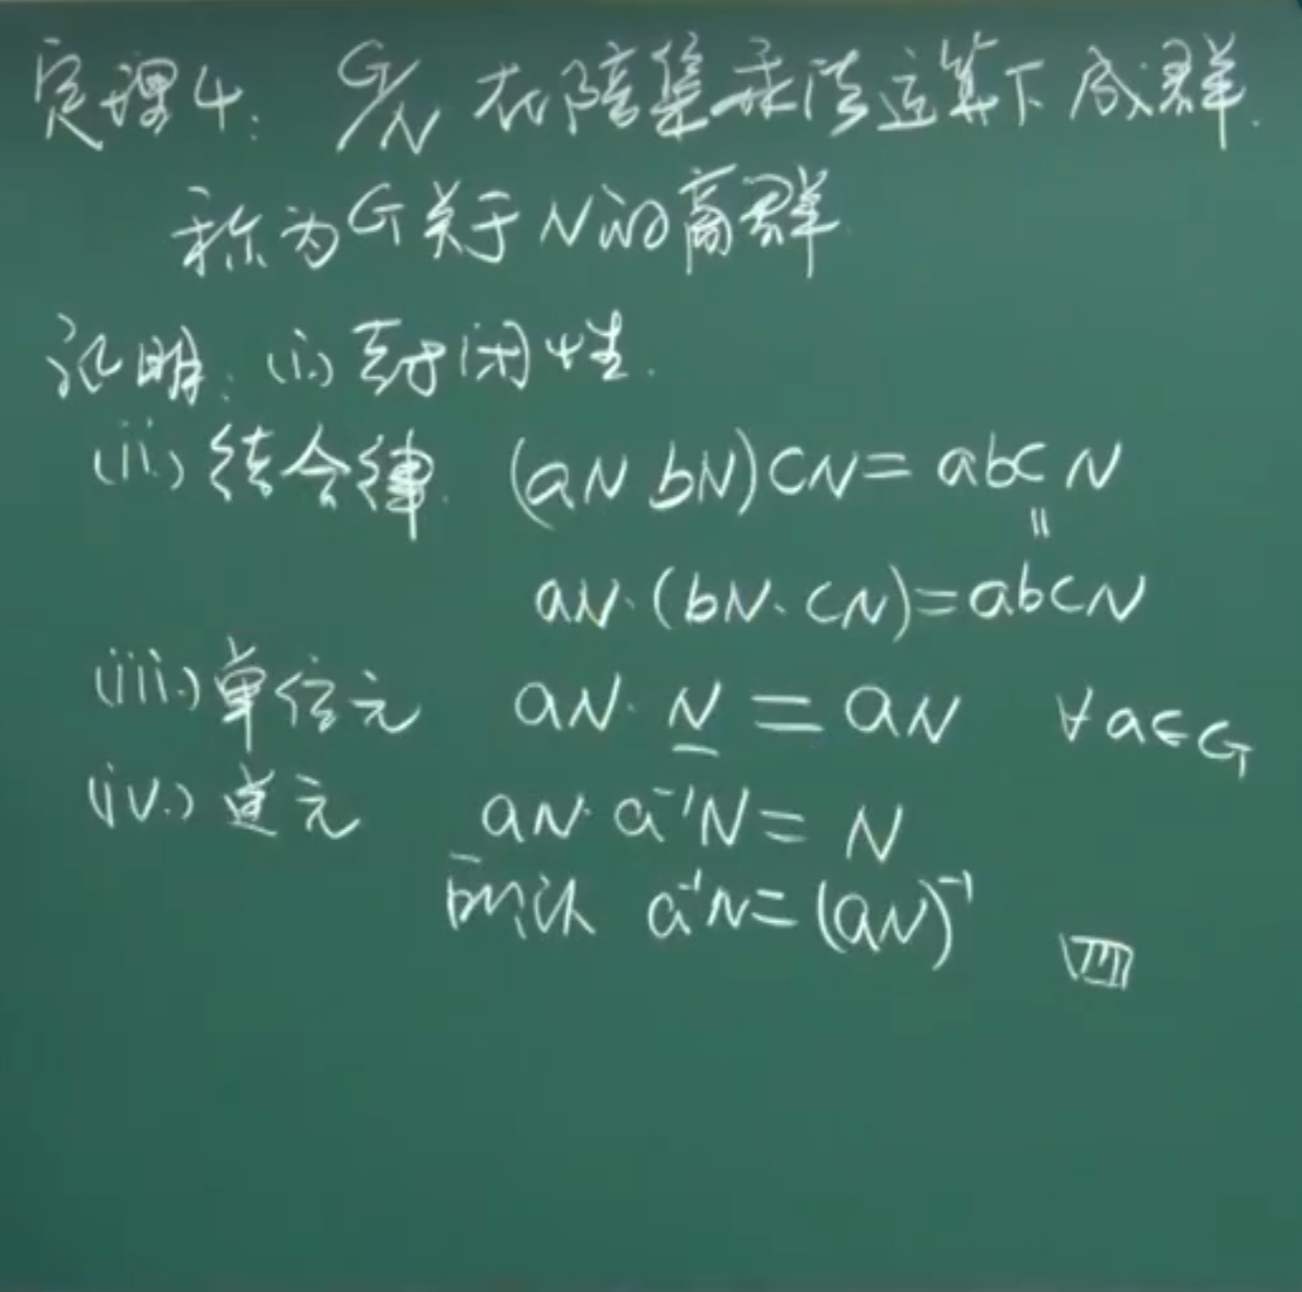 定理4: G/N 在陪集乘法运算下成群.
称为G关于N的商群
证明: (i.) 封闭性.
(ii.) 结合律. (aN bN)cN = abc N
=
aN·(bN·cN)=abcN
(iii.) 单位元 aN·N = aN ∀a∈G
(iv.) 逆元 aN·a⁻¹N = N
所以 a⁻¹N = (aN)⁻¹